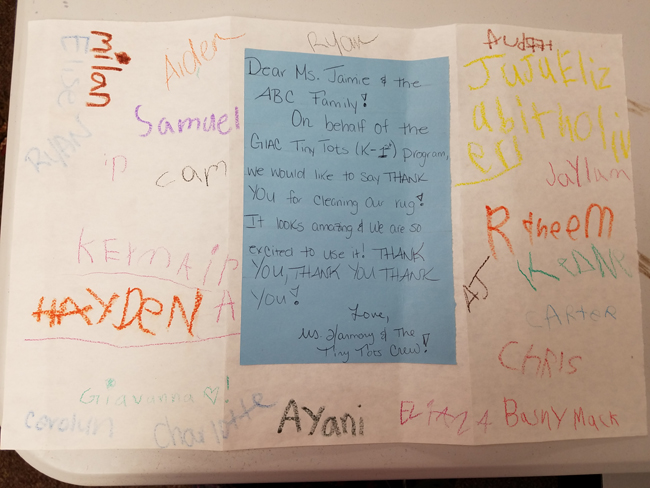 milan
Elsie
Aiden
Ryan
AudrH
JuJuEliz
abithOliv
er
Samuel
RYAN
cam
Dear Ms. Jamie & the
ABC Family!
On behalf of the
GIAC Tiny Tots (K-1st) program,
we would like to say THANK
YOU for cleaning our rug!
It looks amazing & we are so
excited to use it! THANK
YOU, THANK YOU THANK
YOU!
Love,
Ms. Harmony & The
Tiny Tots Crew!
Jaylum
RaheeM
KEANE
AJ
CARTER
CHRIS
HAYDEN
Giavanna ♡!
Carolyn
Charlotte
AYani
Basny Mack